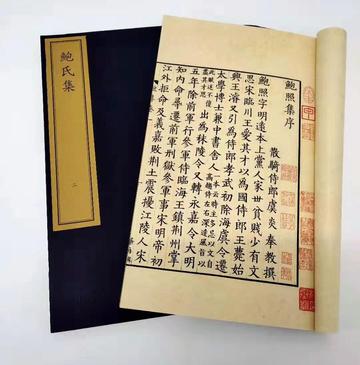 鮑氏集
二
鮑照集序
散騎侍郎虞炎奉教撰
鮑照字明遠本上黨人家世貧賤少有文
思宋臨川王愛其才以為國侍郎王薨始
興王濬又引為侍郎孝武初除海虞令遷
太學博士兼中書舍人
出為秣陵令又轉永嘉令大明
五年除前軍行參軍侍臨海王鎮荊州掌
知內命尋遷前軍刑獄參軍事宋明帝初
江外拒命及義嘉敗荊土震擾江陵人宋